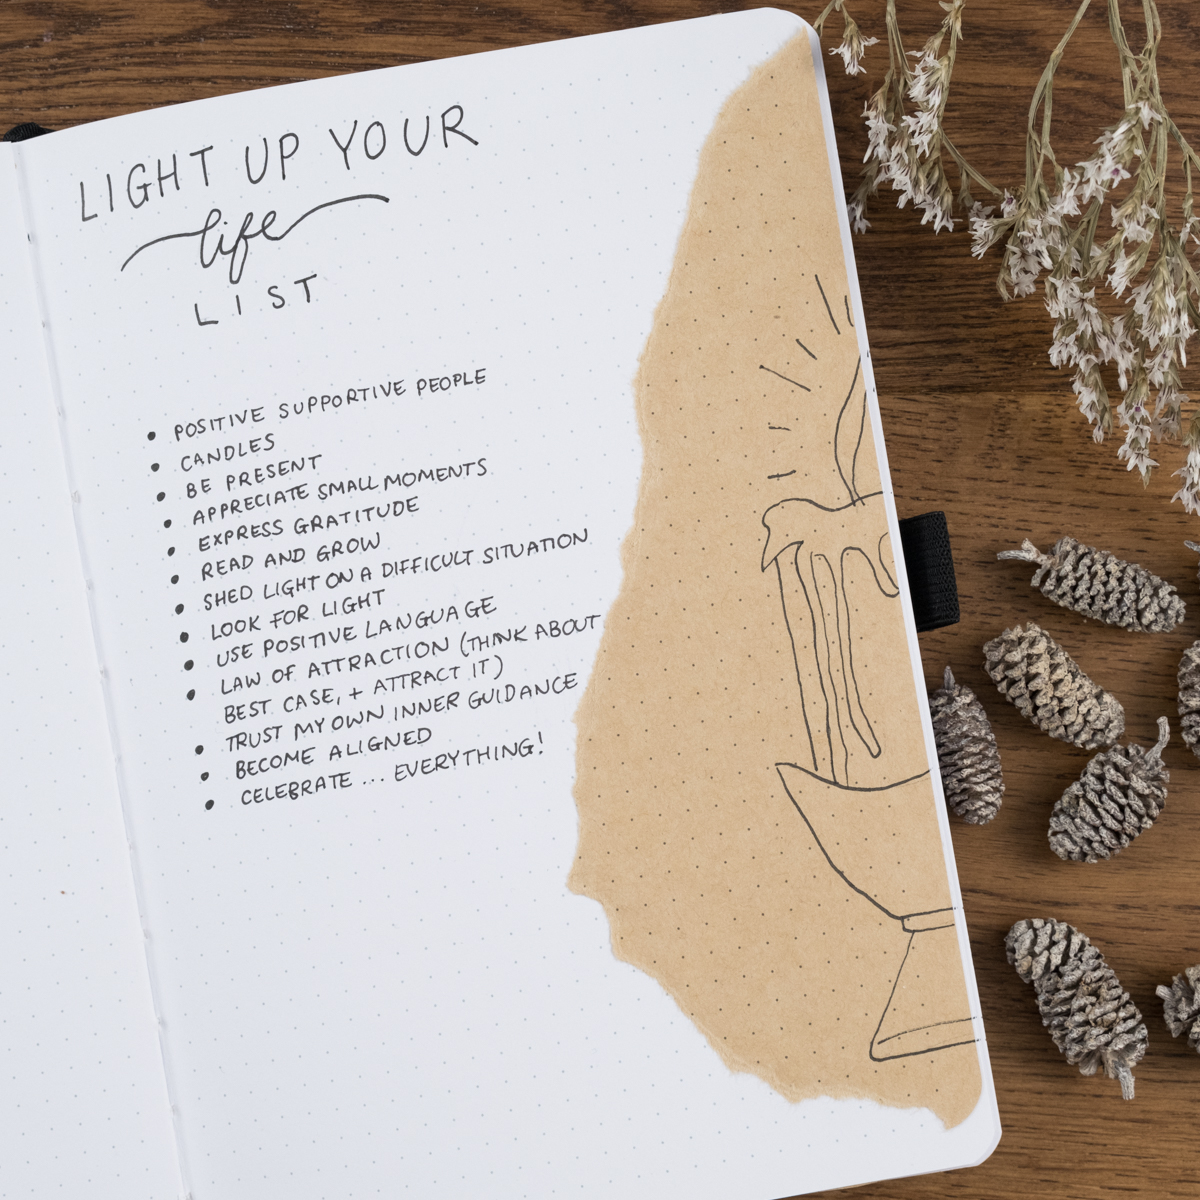 LIGHT UP YOUR
life
LIST
• POSITIVE SUPPORTIVE PEOPLE
• CANDLES
• BE PRESENT
• APPRECIATE SMALL MOMENTS
• EXPRESS GRATITUDE
• READ AND GROW
• SHED LIGHT ON A DIFFICULT SITUATION
• LOOK FOR LIGHT
• USE POSITIVE LANGUAGE
• LAW OF ATTRACTION (THINK ABOUT
BEST CASE, + ATTRACT IT)
• TRUST MY OWN INNER GUIDANCE
• BECOME ALIGNED
• CELEBRATE ... EVERYTHING!